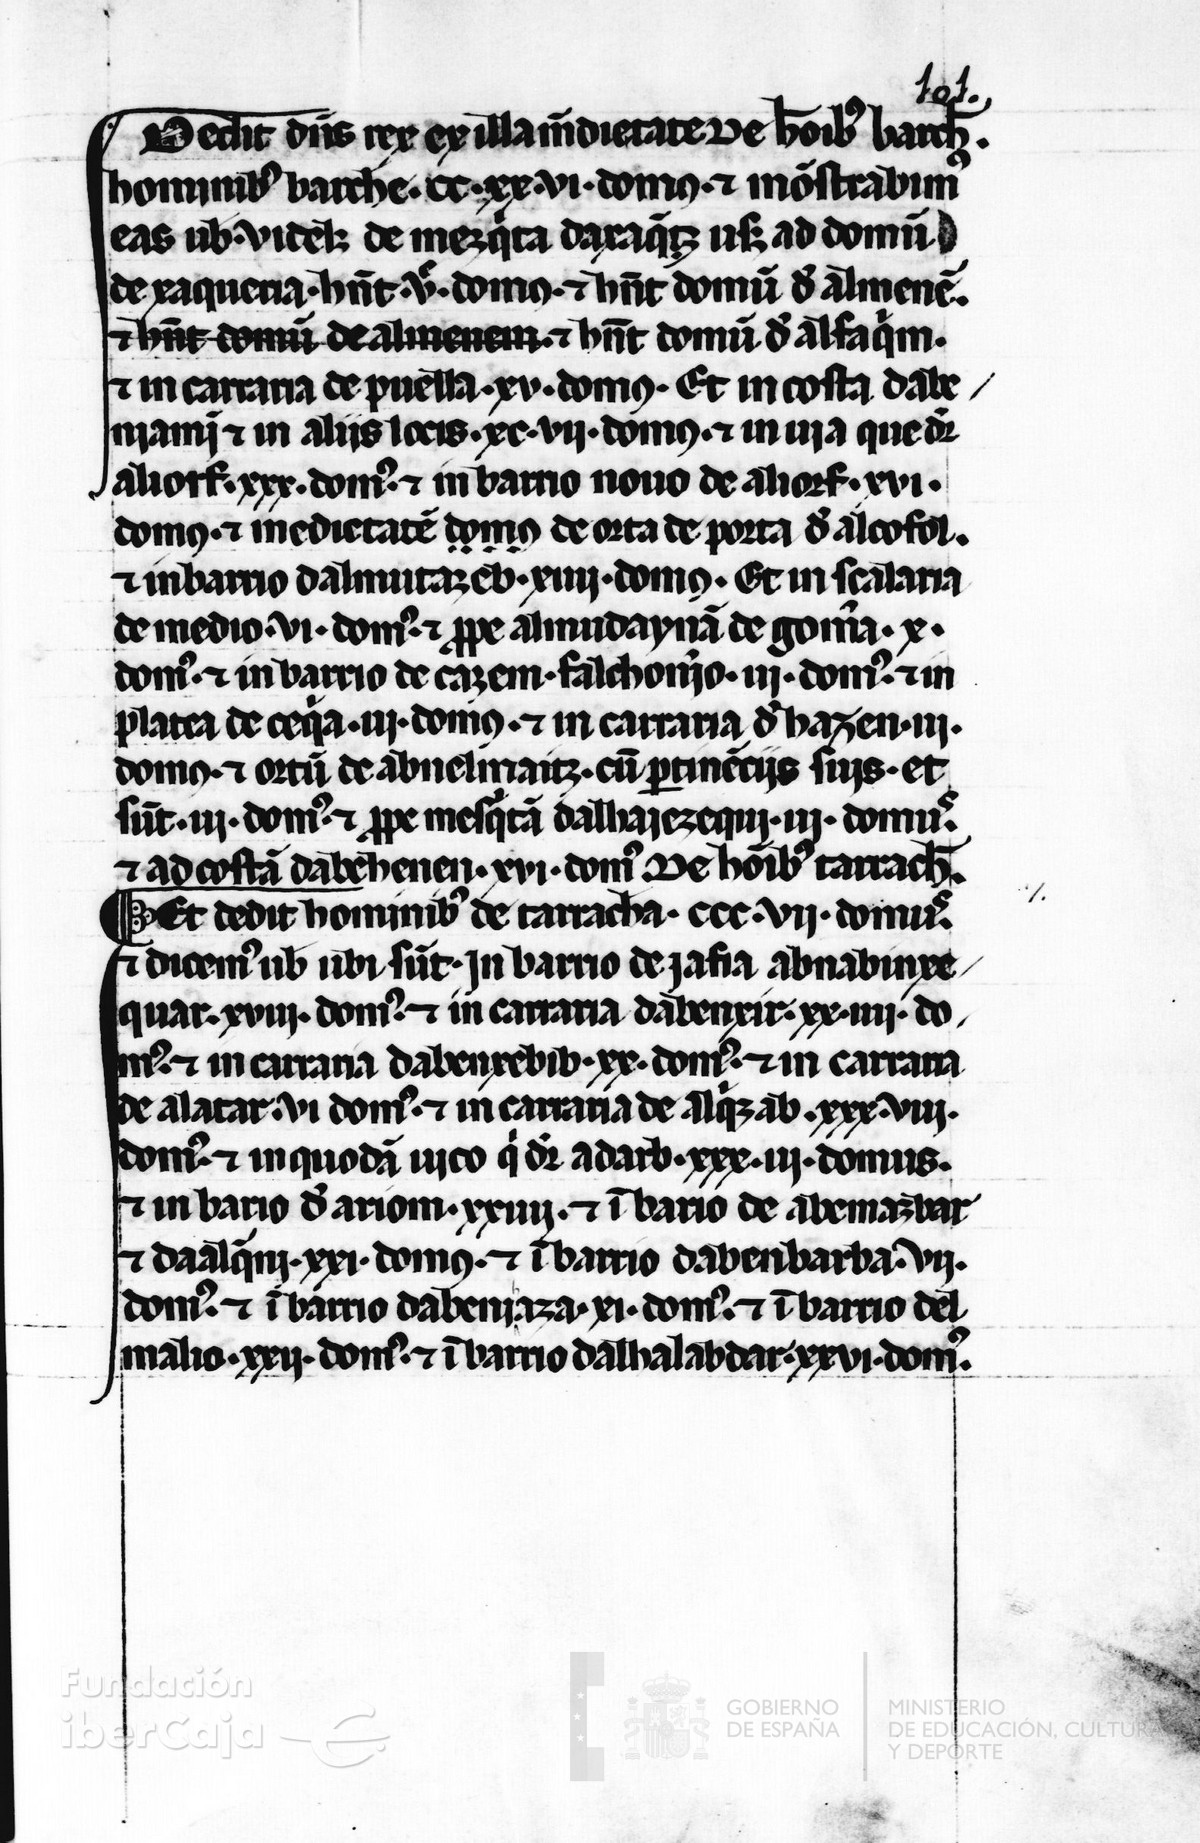 101.
Dedit dn̄s rex ex illa m̄dietate De hoīb⁹ barch̄.
hominib⁹ barch̄e. CC.XX.VI. domꝰ. ⁊ mōstrabim⁹
eas ub. videlꝫ de mezq̇ta daxaq̄tz usꝫ ad domū
de xaqueria. hn̄t .V. domꝰ. ⁊ hn̄t domū d' almenē.
⁊ hn̄t domū de almenem. ⁊ hn̄t domū d' alfaq̇m.
⁊ in carraria de puella .xv. domꝰ. Et in costa dabe/
niamī ⁊ in aliis locis .xc.vii. domꝰ. ⁊ in uia que dr̄
aliorf. xxx. dom⁹. ⁊ in barrio nouo de aliorf. xvi.
domꝰ. ⁊ medietatē domꝰ de orta de porta d' alcofol.
⁊ in barrio dalmutazeb. xiiij. domꝰ. Et in scalaria
de medio. vi. dom⁹. ⁊ ꝓpe almudaynā de gom̄a. x.
dom⁹. ⁊ in barrio de cazem. falchon̄io. iij. dom⁹. ⁊ in
platea de ceq̇a. iij. domꝰ. ⁊ in carraria d' hazen. iii.
domꝰ. ⁊ ortū de abnelmaitz. cū ꝑtinētijs suis. et
sūt. iij. dom⁹. ⁊ ꝓpe mesq̇tā dalhaiezequi. iij. domu⁹.
⁊ ad costā dabēhenen. xvi. dom⁹ De hoīb⁹ tarrach̄.
Et dedit hominib⁹ de tarracha. CCC.VII. domu⁹.
⁊ dicem⁹ ub ubi sūt. In barrio de jafia abnabinxe/
quar. xviii. dom⁹. ⁊ in carraria dabenxir. xx.iiii. do/
m⁹. ⁊ in carraria dabenxebib. xx. dom⁹. ⁊ in carraria
de alatar. vi dom⁹. ⁊ in carraria de alq̇zab. xxx.viii.
dom⁹. ⁊ in quodā uico q̇ dr̄ adarb. xxx.iii. domus.
⁊ in bario d' ariom. xxiiij. ⁊ ī bario de abemazbar
⁊ daalq̄mi. xxi. domꝰ. ⁊ ī barrio dabenbarba. vii.
dom⁹. ⁊ ī barrio dabeniaza. xi. dom⁹. ⁊ ī barrio del
malio. xxij. dom⁹. ⁊ ī barrio dalhalabdar. xxvi. dom⁹.
Fundación
iberCaja
GOBIERNO
DE ESPAÑA
MINISTERIO
DE EDUCACIÓN, CULTURA
Y DEPORTE